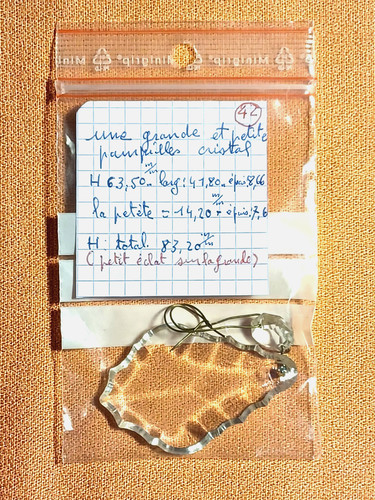 Minigrip Minigrip
42
une grande et petite
pampilles cristal
H 63,50 m/m larg: 41,80 m/m épais: 8,66
la petite = 14,20 m/m épais: 7,6
H: total. 83,20 m/m
(petit éclat sur la grande)